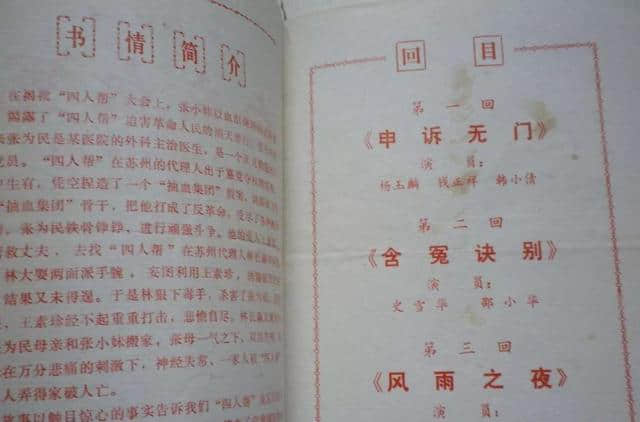 书情简介
在揭批“四人帮”大会上，张小妹以血
揭露了“四人帮”迫害革命人民的滔天
张为民是某医院的外科主治医生，是一个
党员。“四人帮”在苏州的代理人出于
卫生有，凭空捏造了一个“抽血集团”
“抽血集团”骨干，把他打成了反革命，
，张为民铁骨铮铮，进行顽强斗争。
营救丈夫，去找“四人帮”在苏州代理人
林大耍两面派手腕，妄图利用王素珍，
结果又未得逞。于是林狠下毒手，杀害了张
，王素珍经不起重重打击，悲愤自尽。林
为民母亲和张小妹搬家，张母一气之下，
在万分悲痛的刺激下，神经失常。一家人被“四人帮”
人弄得家破人亡。
故事以触目惊心的事实告诉我们“四人帮”
回目
第一回
《申诉无门》
演员：
杨玉麟 钱正祥 韩小倩
第二回
《含冤诀别》
演员：
史雪华 邵小华
第三回
《风雨之夜》
演员：